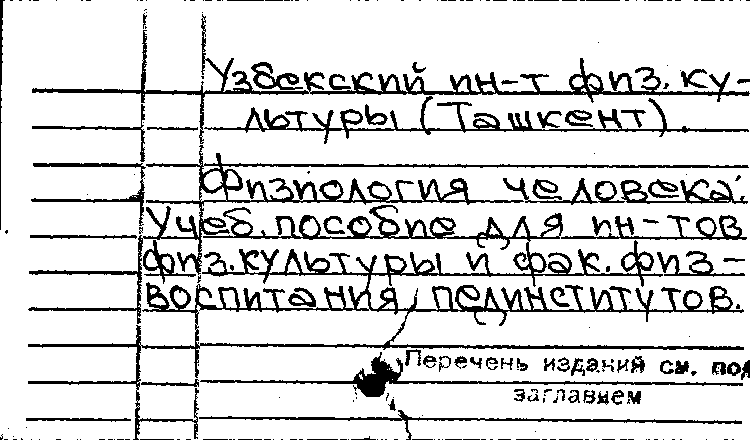 Узбекский ин-т физ. ку-
льтуры (Ташкент).
Физиология человека:
Учеб. пособие для ин-тов
физ. культуры и фак. физ-
воспитания пединститутов.
Перечень изданий см. под
заглавием